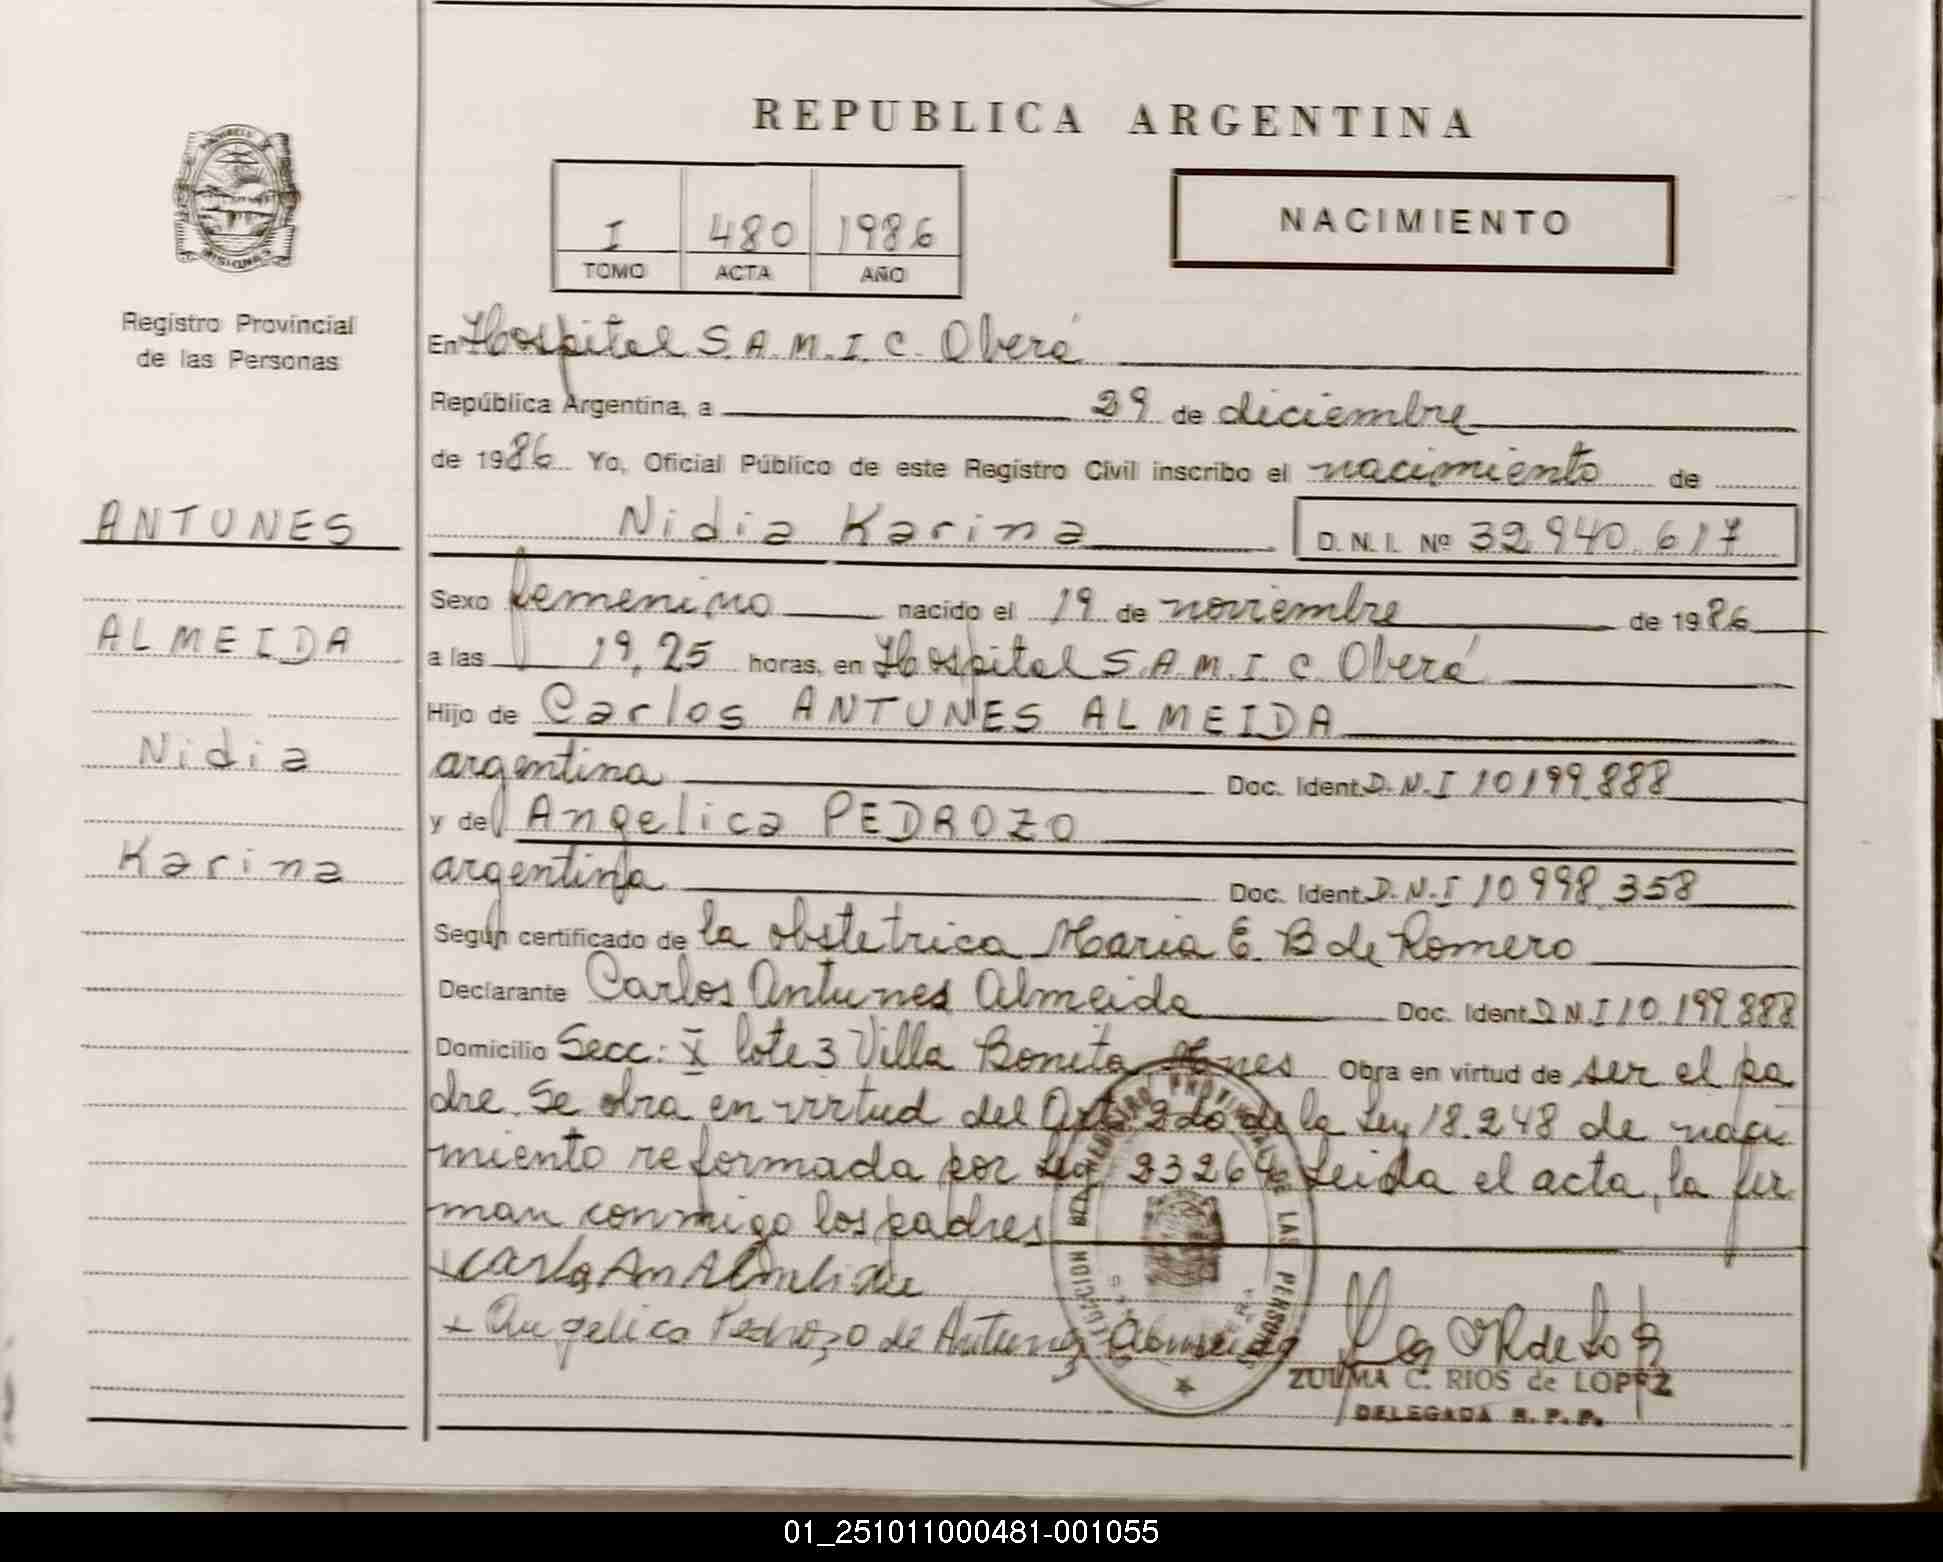 REPUBLICA ARGENTINA
I 480 1986
TOMO ACTA AÑO
NACIMIENTO
Registro Provincial
de las Personas
En Hospital S.A.M.I.C. Oberá
República Argentina, a 29 de diciembre
de 1986 Yo, Oficial Público de este Registro Civil inscribo el nacimiento de
ANTUNES
ALMEIDA
Nidia
Karina
Nidia Karina D.N.I. Nº 32.940.617
Sexo femenino nacido el 19 de noviembre de 1986
a las 19,25 horas, en Hospital S.A.M.I.C. Oberá
Hijo de Carlos ANTUNES ALMEIDA
argentina Doc. Ident. D.N.I 10199.888
y de Angelica PEDROZO
argentina Doc. Ident. D.N.I 10998.358
Según certificado de la obstetrica Maria E. B de Romero
Declarante Carlos Antunes Almeida Doc. Ident. D.N.I 10.199.888
Domicilio Secc: X lote 3 Villa Bonita Obra en virtud de ser el pa
dre. Se obra en virtud del Art. 2do de la Ley 18.248 de naci
miento reformada por Ley 23264 Leida el acta, la fir
man conmigo los padres
x Angelica Pedrozo de Antunes Almeida
ZULMA C. RIOS de LOPEZ
DELEGADA R.P.P.
01_251011000481-001055